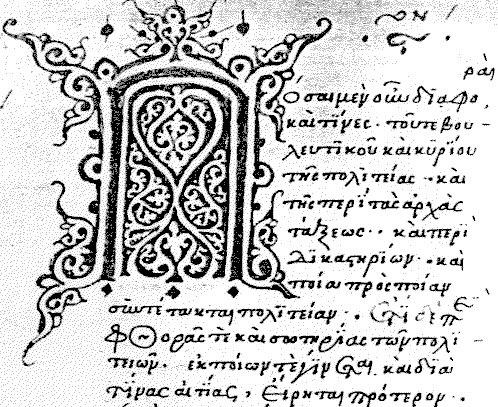 ον
ραὶ
Πόσαι μὲν οὖν διαφο
καὶ τίνες· τοῦ τε βου
λευτικοῦ καὶ κυρίου
τῆς πολιτείας· καὶ
τῆς περὶ τὰς ἀρχὰς
τάξεως· καὶ περὶ
δικαστηρίων· καὶ
ποία πρὸς ποίαν
συντέτακται πολιτείαν· ἔτι δὲ πε
φθορᾶς τε καὶ σωτηρίας τῶν πολι
τειῶν· ἐκ ποίων τε γίνεται καὶ διὰ
τίνας αἰτίας, εἴρηται πρότερον·